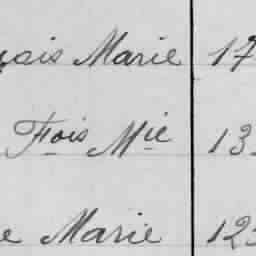 çois Marie 17
Fois Mie 13
e Marie 125